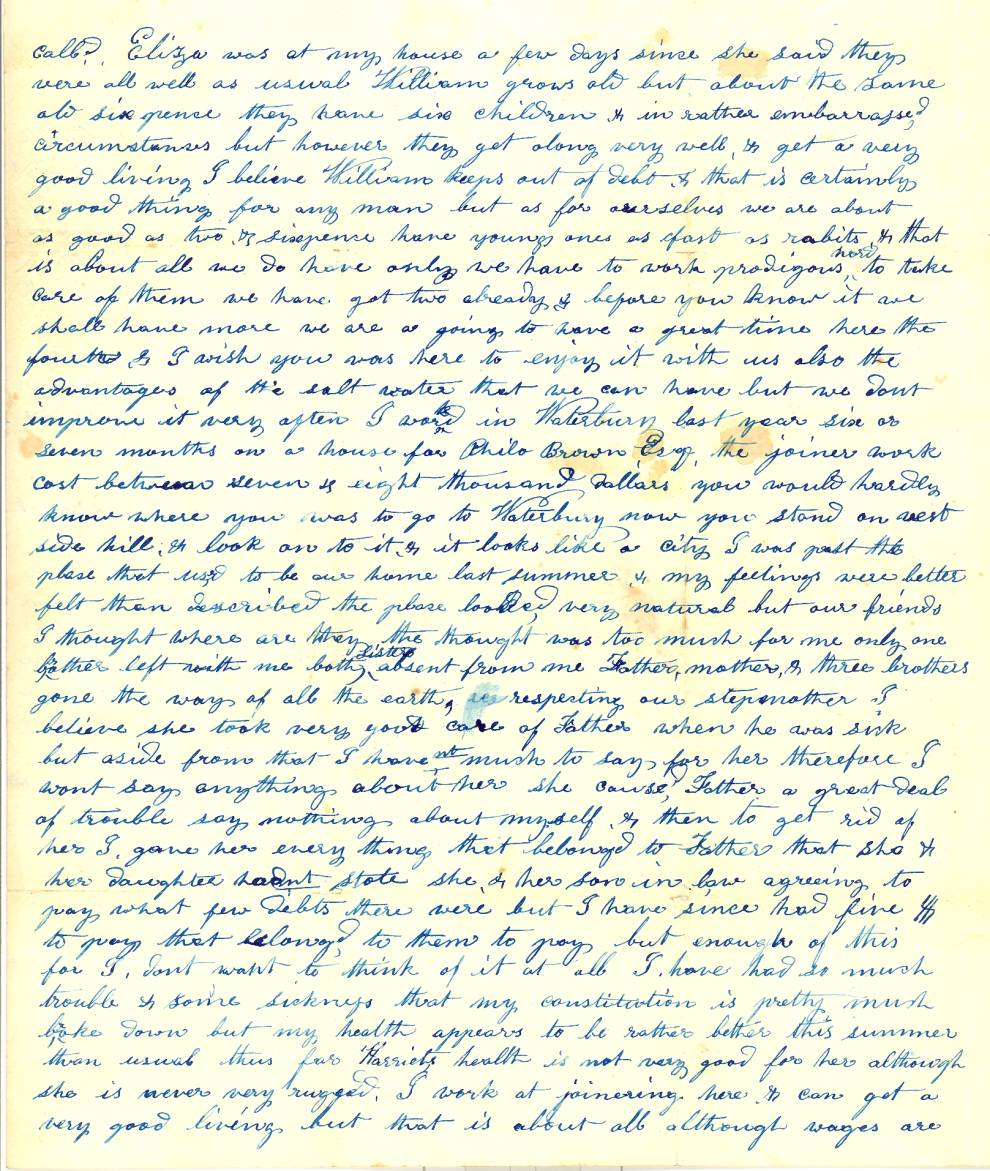 call?. Eliza was at my house a few days since she said they
were all well as usual William grows old but about the same
old six pence they have six children & in rather embarrassed
circumstances but however they get along very well, & get a very
good living I believe William keeps out of debt & that is certainly
a good thing for any man but as for ourselves we are about
as good as two & sixpence have young ones as fast as rabits, & that
is about all we do have only we have to work prodigous hard to take
care of them we have got two already & before you know it we
shall have more we are a going to have a great time here the
fourth & I wish you was here to enjoy it with us also the
advantages of the salt water that we can have but we dont
improve it very often I work'd in Waterbury last year six or
seven months on a house for Philo Brown Esq, the joiner work
cost between seven & eight thousand dallars you would hardly
know where you was to go to Waterbury now you stand on west
side hill, & look on to it & it looks like a city I was past the
plase that us'd to be our home last summer & my feelings were better
felt than described the plase looked very natural but our friends
I thought where are they the thought was too much for me only one
brother left with me both sisters absent from me Father, mother, & three brothers
gone the way of all the earth, respecting our stepmother I
believe she took very good care of Father when he was sick
but aside from that I have nt much to say for her therefore I
wont say anything about her she caus'd Father a great deal
of trouble say nothing about myself & then to get rid of
her I, gave her every thing that belong'd to Father that she &
her daughter hadnt stole she, & her son in law agreeing to
pay what few debts there were but I have since had five $
to pay that belong'd to them to pay but enough of this
for I, dont waht to think of it at all I have had so much
trouble & some sickness that my constitution is pretty much
broke down but my health appears to be rather better this summer
than usual thus far Harriets health is not very good for her although
she is never very rugged. I work at joinering here & can get a
very good living but that is about all although wages are